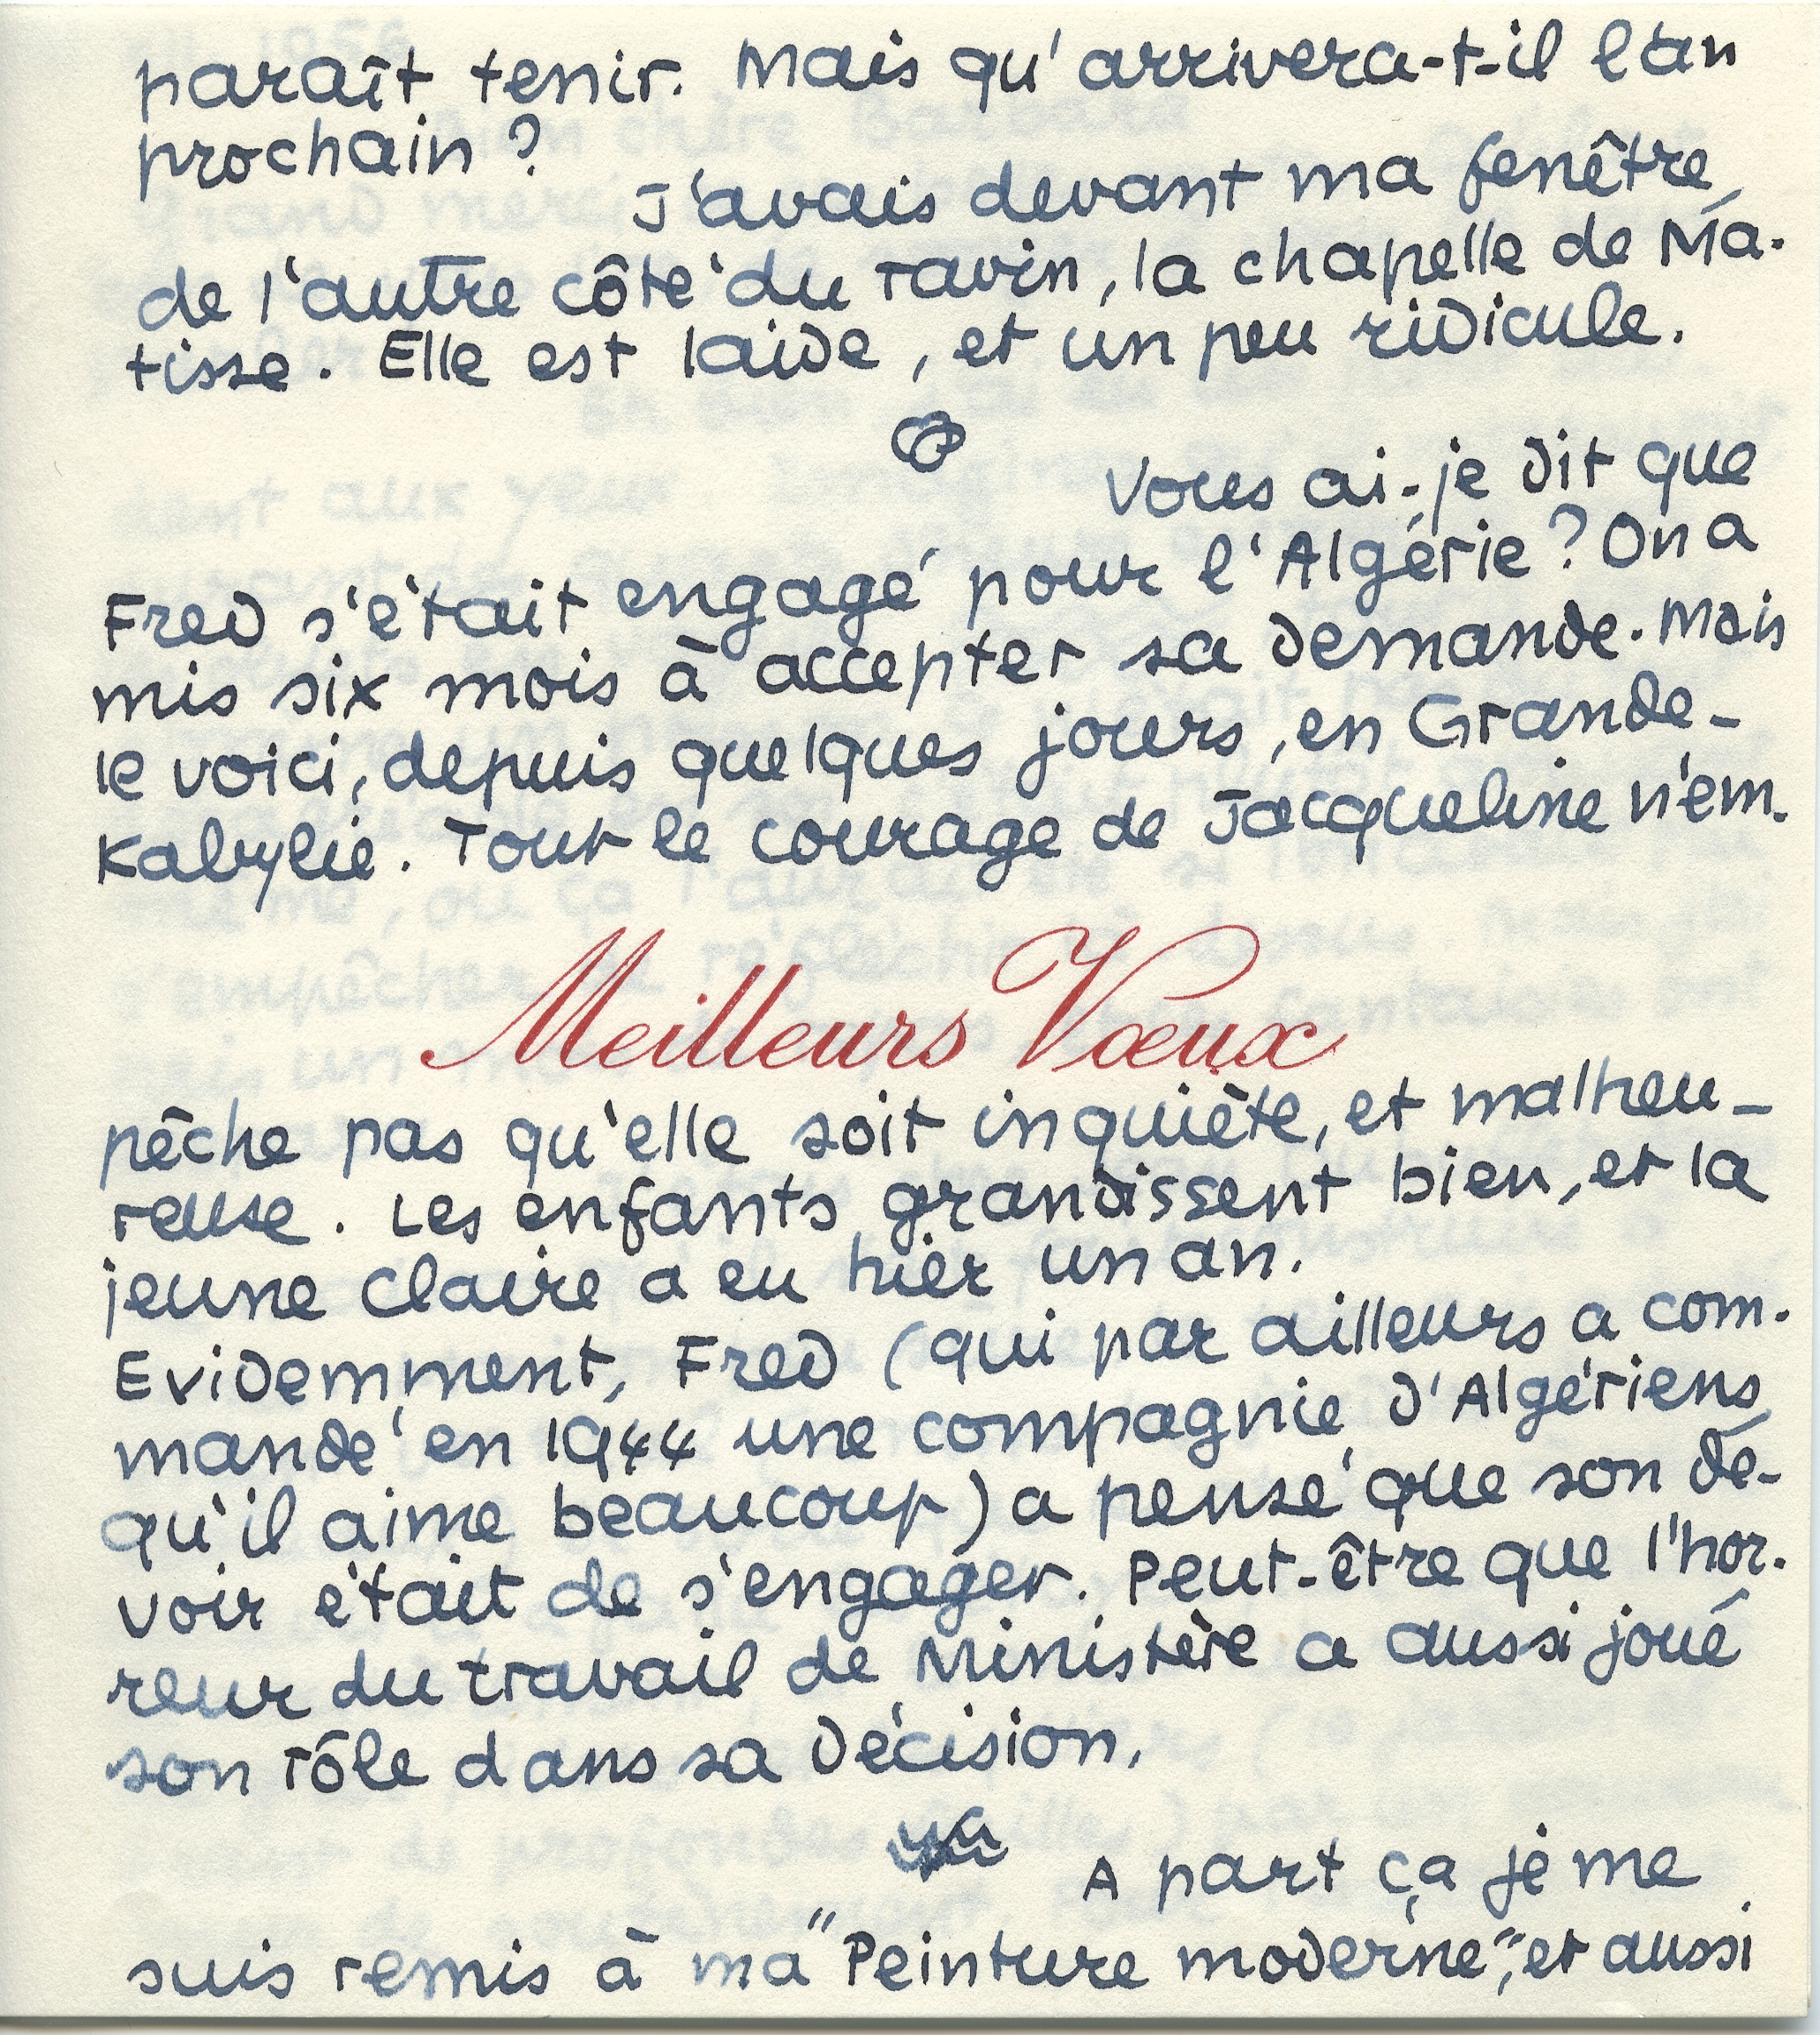 paraît tenir. Mais qu'arrivera-t-il l'an
prochain ?
J'avais devant ma fenêtre,
de l'autre côté du ravin, la chapelle de Ma-
tisse. Elle est laide, et un peu ridicule.
Vous ai-je dit que
Fred s'était engagé pour l'Algérie ? On a
mis six mois à accepter sa demande. Mais
le voici, depuis quelques jours, en Grande-
Kabylie. Tout le courage de Jacqueline n'em-
Meilleurs Vœux
pêche pas qu'elle soit inquiète, et malheu-
reuse. Les enfants grandissent bien, et la
jeune Claire a eu hier un an.
Evidemment, Fred (qui par ailleurs a com-
mandé en 1944 une compagnie d'Algériens
qu'il aime beaucoup) a pensé que son de-
voir était de s'engager. Peut-être que l'hor-
reur du travail de Ministère a aussi joué
son rôle dans sa décision.
A part ça je me
suis remis à ma "Peinture moderne", et aussi